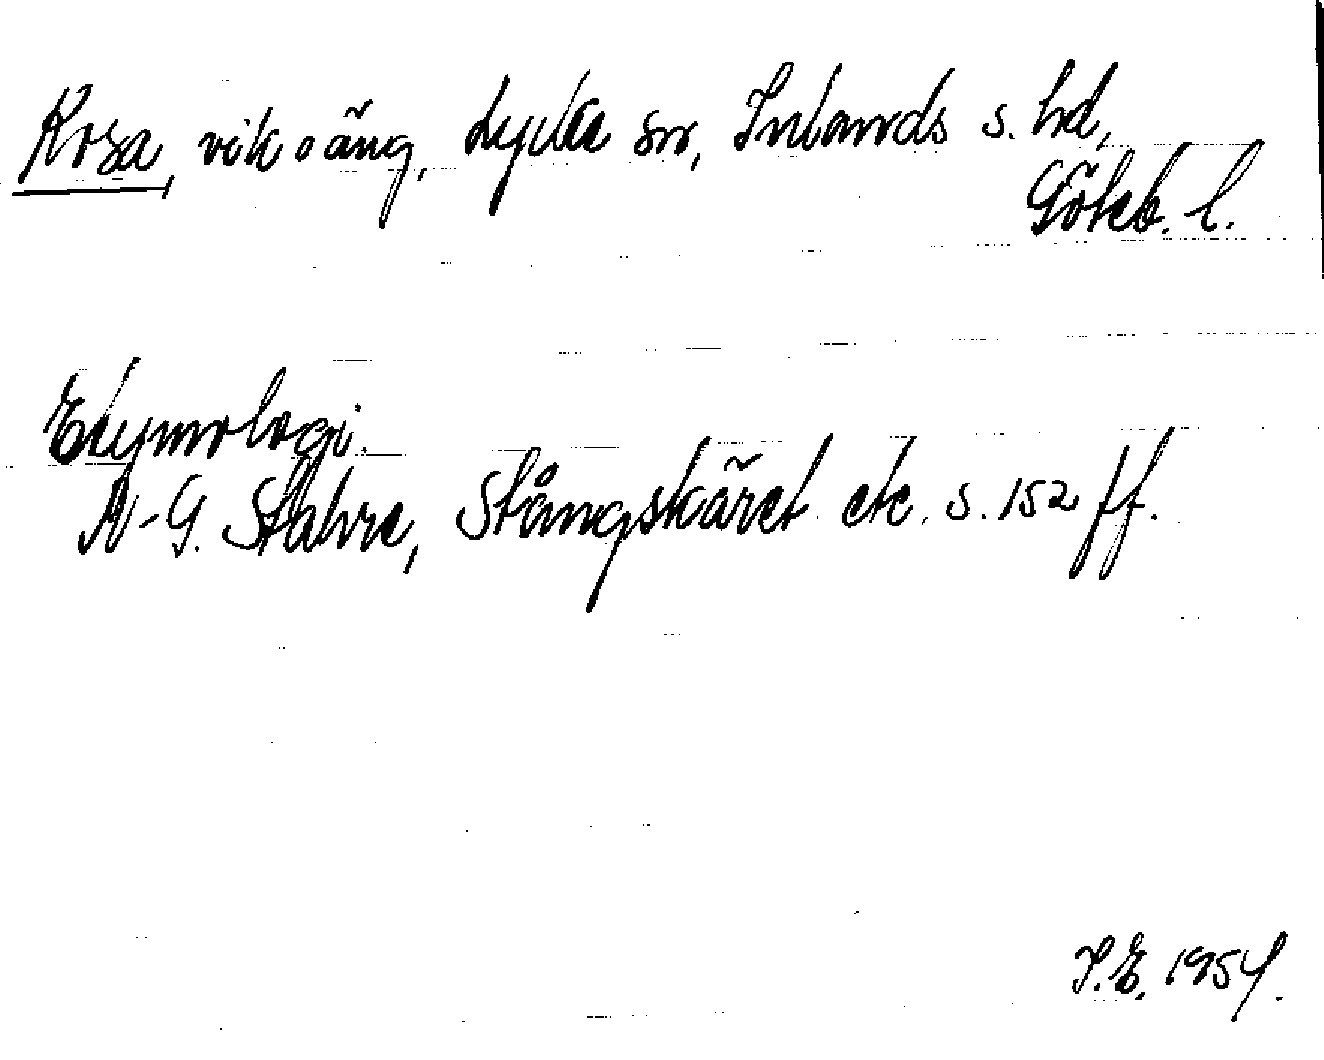 Rosa, vik o äng, Lycke sn, Inlands s. hd,
Göteb. l.
Etymologi.
N-G. Stahre, Stångskäret etc. s. 152 ff.
I.E. 1954.